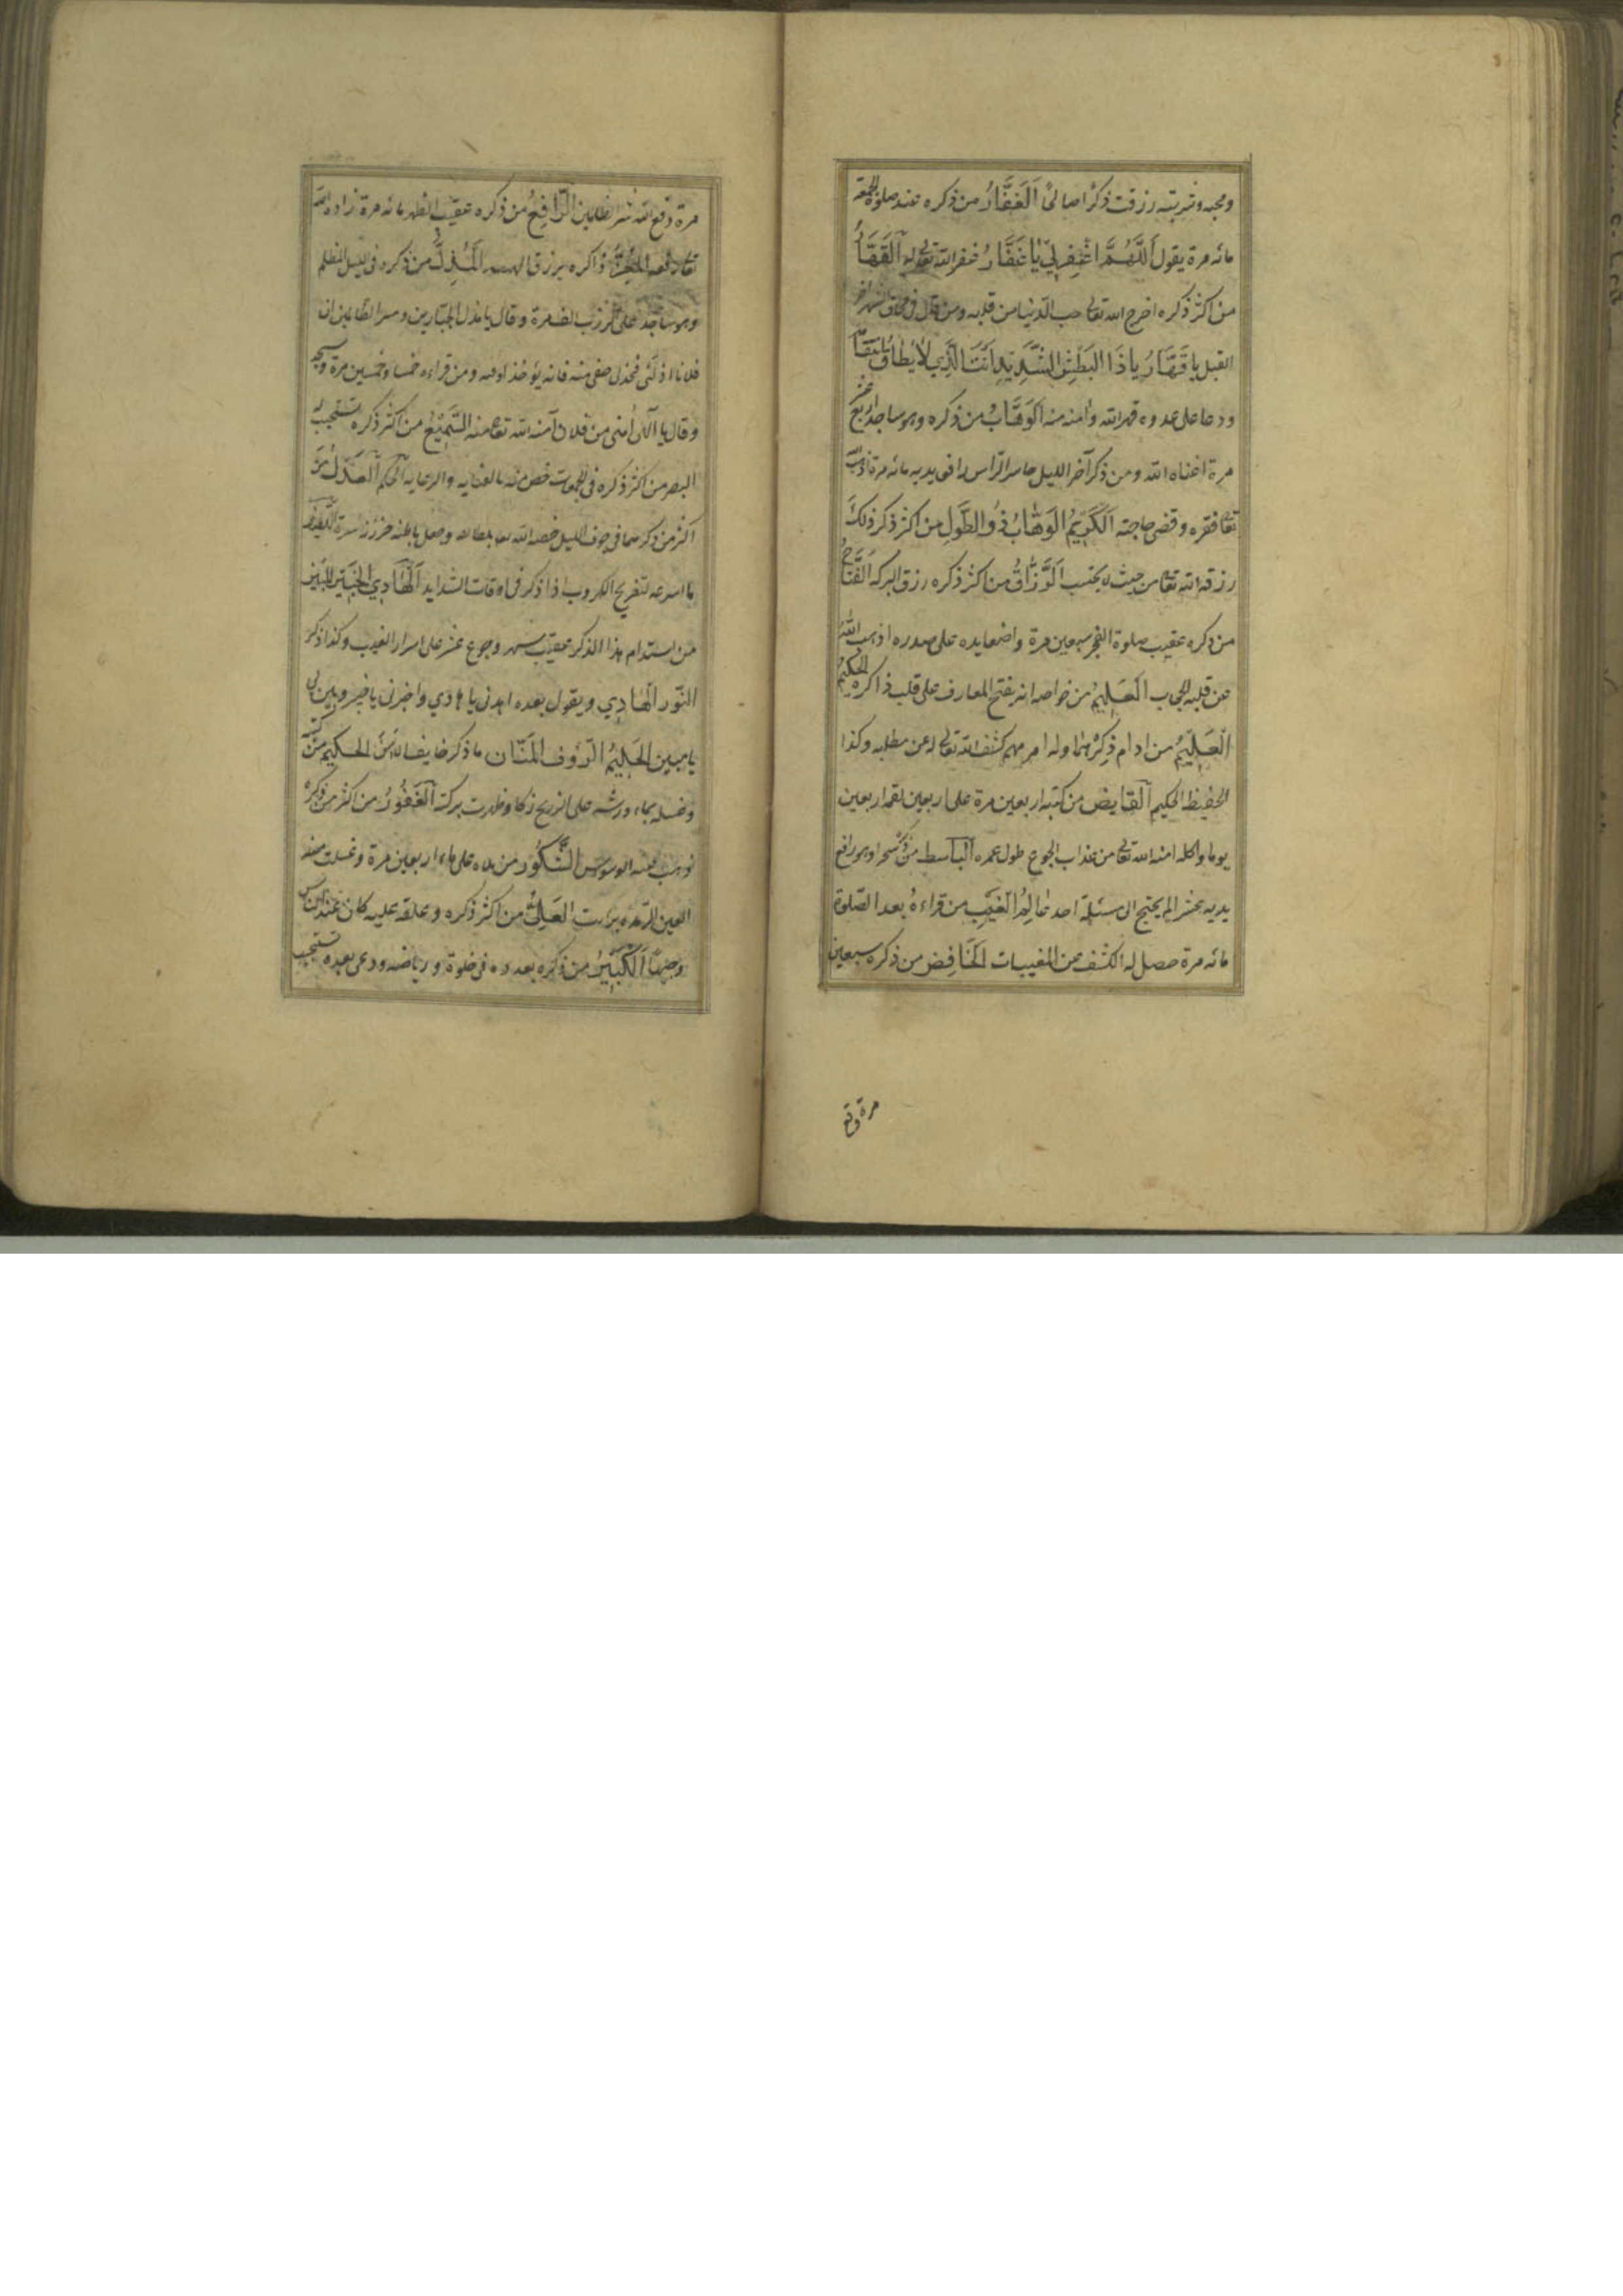 ومحبه وتربته رزقت ذكرا صالحا اَلْغَفَّارُ من ذكره عند صلوة الجمعة
مائه مرة يقول اَللَّهُمَّ اغْفِرْلِي يَا غَفَّارُ غفر الله تعالى له اَلْقَهَّارُ
من اكثر ذكره اخرج الله تعالى حب الدنيا من قلبه ومن قال فى
القبل يا قَهَّارُ يَا ذَا الْبَطْشِ الشَّدِيدِ اَنْتَ الَّذِي لَا يُطَاقُ اِنْتِقَامُهُ
ودعا على عدوه قهره الله وامنه منه اَلْوَهَّابُ من ذكره وهو ساجد اربع عشر
مرة اغناه الله ومن ذكر آخر الليل حاسر الراس رافع يديه مائه مرة اذهب الله
تعا فقره وقضى حاجته اَلْكَرِيمُ الْوَهَّابُ ذُو الطَّوْلِ من اكثر ذكر ذلك
رزقه الله تعا من حيث لا يحتسب اَلرَّزَّاقُ من اكثر ذكره رزق البركه اَلْفَتَّاحُ
من ذكره عقيب صلوة الفجر سبعين مرة واضعا يده على صدره اذهب الله
عن قلبه الحجاب اَلْعَلِيمُ من خواصه انه يفتح المعارف على قلب ذاكره الحكيم
الْعَلِيمُ من ادام ذِكْرَهما وله امر مهم كشف الله تعالى له عن مطلبه وكذا
الحفيظ الحكيم اَلْقَابِض من كتبه اربعين مرة على اربعين لقمه اربعين
يوما واكله امنه الله تعالى من عذاب الجوع طول عمره اَلْبَاسِط من ذكر سحرا وهو رافع
يديه عشرا لم يحتج الى مسئلة احد عَالِمُ الْغَيْبِ من قراءه بعد الصلوة
مائه مرة حصل له الكشف عن المغيبات اَلْخَافِض من ذكره سبعين
مرة دفع
مرة دفع الله شر الظالمين اَلرَّافِعُ من ذكره عقيب الظهر مائه مرة زاده الله
تعا رفعه اَلْمُعِزُّ ذاكره يرزق الهيبه اَلْمُذِلُّ من ذكره فى الليل المظلم
وهو ساجد على وقال يا مذل الجبارين الظالمين ان
فلانا اذلنى فخذ لى حقى منه فانه يؤخذ لوقته ومن قراءه خمسا وخمسين مرة وسجد
وقال يا امنى من فلان آمنه الله تعا منه اَلسَّمِيعُ من اكثر ذكره استجيب له
البصير من اكثر ذكره فى خص منه بالعنايه والرعايه اَلْحَكَم الْعَدْلُ من
اكثر من ذكرهما فى جوف الليل خصه الله وجعل باطنه اَللَّطِيف
ما اسرعه لتفريج الكروب اذا ذكر فى اوقات الشدايد اَلْهَادِي الْخَبِيرُ الْمُبِين
من استدام هذا الذكر عقيب سهر وجوع عثر على اسرار الغيب وكذا ذكر
النُّور الْهَادِي ويقول بعده اهدنى يا هادى واخبرنى يا خبير وبين لى
يا مبين الْحَلِيمُ الرَّؤُف الْمَنَّان ما ذكر خايف الا اَمِنَ الحكيم من كتبه
وغسله بماء ورشه على الزرع زكا وظهرت بركته اَلْغَفُورُ من اكثر من ذكره
ذهب عنه الوسوس الشَّكُور من تلاه على ماء اربعين مرة وغسلت منه
العين الرمده برات الْعَلِيُّ من اكثر ذكره وعلقه عليه كان عند الناس
وجيها اَلْكَبِيرُ من ذكره بعدده فى خلوة ورياضه ودعى بعده استجيب